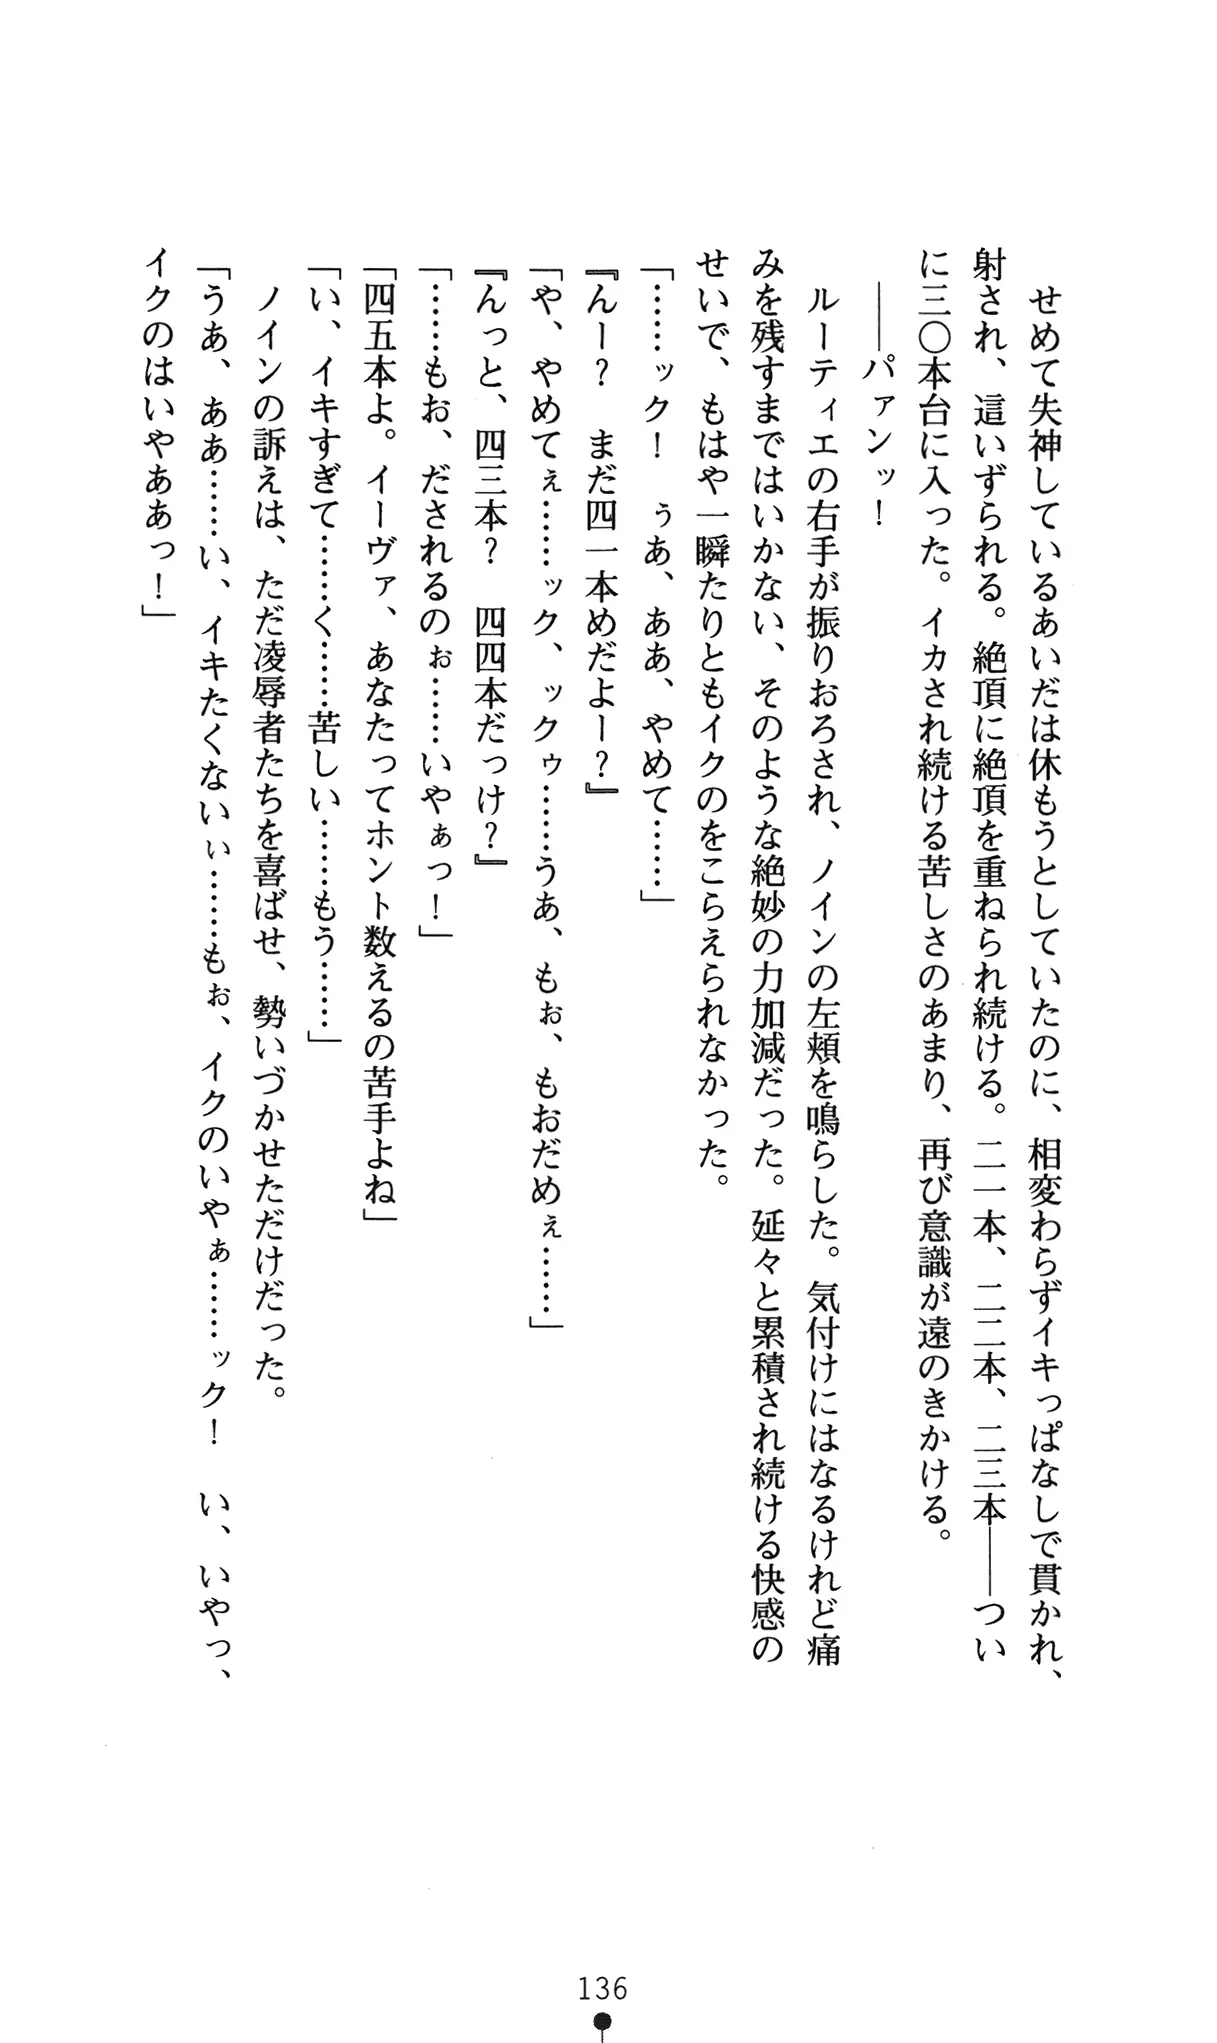 せめて失神しているあいだは休もうとしていたのに、相変わらずイキっぱなしで貫かれ、
射され、這いずられる。絶頂に絶頂を重ねられ続ける。二一本、二二本、二三本――つい
に三〇本台に入った。イカされ続ける苦しさのあまり、再び意識が遠のきかける。
――パァンッ！
ルーティエの右手が振りおろされ、ノインの左頬を鳴らした。気付けにはなるけれど痛
みを残すまではいかない、そのような絶妙の力加減だった。延々と累積され続ける快感の
せいで、もはや一瞬たりともイクのをこらえられなかった。
「……ック！　ぅあ、ああ、やめて……」
『んー？　まだ四一本めだよー？』
「や、やめてぇ……ック、ックゥ……うあ、もぉ、もおだめぇ……」
『んっと、四三本？　四四本だっけ？』
「……もお、だされるのぉ……いやぁっ！」
「四五本よ。イーヴァ、あなたってホント数えるの苦手よね」
「い、イキすぎて……く……苦しい……もう……」
ノインの訴えは、ただ凌辱者たちを喜ばせ、勢いづかせただけだった。
「うあ、ああ……い、イキたくないぃ……もぉ、イクのいやぁ……ック！　い、いやっ、
イクのはいやああっ！」
136